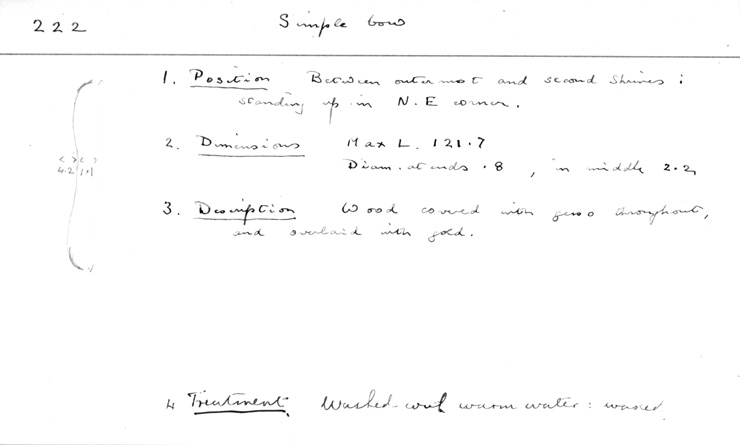 222
Simple bow
1. Position Between outermost and second shrines:
standing up in N.E corner.
2. Dimensions Max L. 121.7
Diam. at ends .8, in middle 2.2
< > < >
4.2 1.1
3. Description Wood covered with gesso throughout,
and overlaid with gold.
4 Treatment. Washed with warm water: waxed